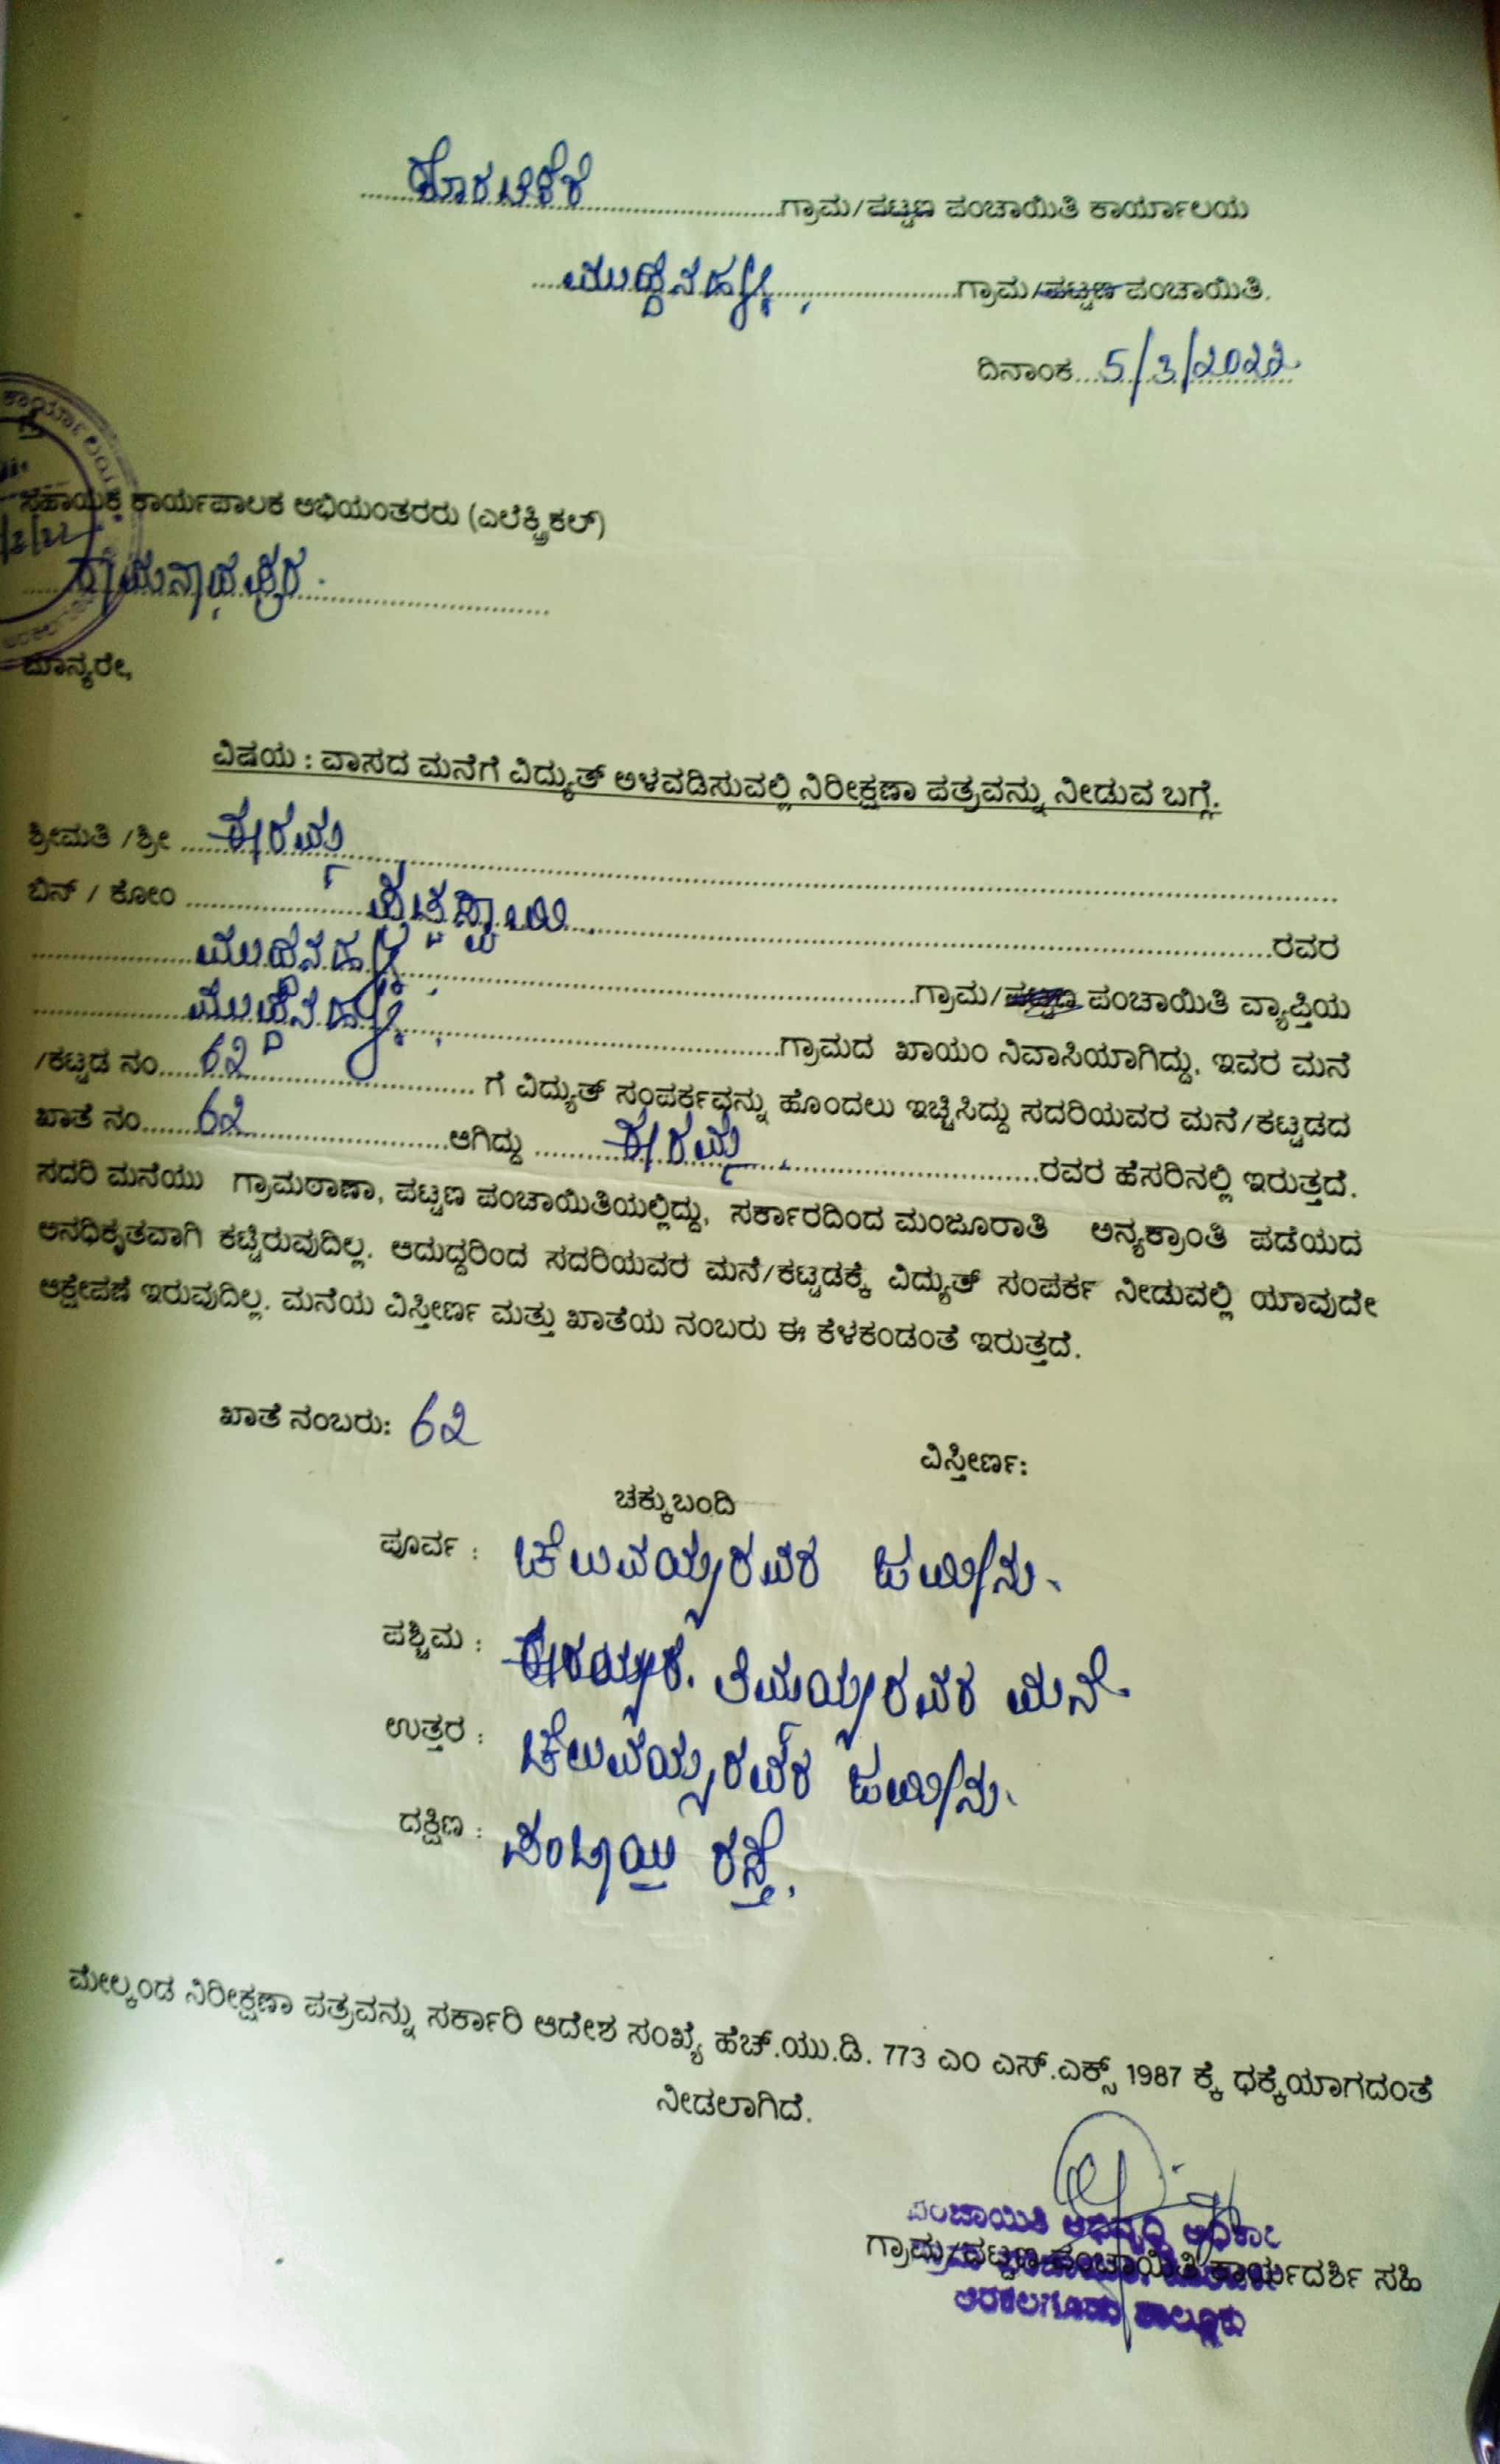 ಗ್ರಾಮ/ಪಟ್ಟಣ ಪಂಚಾಯಿತಿ ಕಾರ್ಯಾಲಯ
ಮುದ್ದನಹಳ್ಳಿ, ಗ್ರಾಮ/ಪಟ್ಟಣ ಪಂಚಾಯಿತಿ.
ದಿನಾಂಕ 5/3/2022
ಸಹಾಯಕ ಕಾರ್ಯಪಾಲಕ ಅಭಿಯಂತರರು (ಎಲೆಕ್ಟ್ರಿಕಲ್)
ರಾಮನಾಥಪುರ.
ಮಾನ್ಯರೇ,
ವಿಷಯ : ವಾಸದ ಮನೆಗೆ ವಿದ್ಯುತ್ ಅಳವಡಿಸುವಲ್ಲಿ ನಿರೀಕ್ಷಣಾ ಪತ್ರವನ್ನು ನೀಡುವ ಬಗ್ಗೆ.
ಶ್ರೀಮತಿ /ಶ್ರೀ ಈರಮ್ಮ
ಬಿನ್ / ಕೋಂ ಪುಟ್ಟಸ್ವಾಮಿ. ರವರ
ಮುದ್ದನಹಳ್ಳಿ, ಗ್ರಾಮ/ಪಟ್ಟಣ ಪಂಚಾಯಿತಿ ವ್ಯಾಪ್ತಿಯ
ಮುದ್ದನಹಳ್ಳಿ, ಗ್ರಾಮದ ಖಾಯಂ ನಿವಾಸಿಯಾಗಿದ್ದು, ಇವರ ಮನೆ
/ಕಟ್ಟಡ ನಂ 62 ಗೆ ವಿದ್ಯುತ್ ಸಂಪರ್ಕವನ್ನು ಹೊಂದಲು ಇಚ್ಚಿಸಿದ್ದು ಸದರಿಯವರ ಮನೆ/ಕಟ್ಟಡದ
ಖಾತೆ ನಂ 62 ಆಗಿದ್ದು ಈರಮ್ಮ ರವರ ಹೆಸರಿನಲ್ಲಿ ಇರುತ್ತದೆ.
ಸದರಿ ಮನೆಯು ಗ್ರಾಮಠಾಣಾ, ಪಟ್ಟಣ ಪಂಚಾಯಿತಿಯಲ್ಲಿದ್ದು, ಸರ್ಕಾರದಿಂದ ಮಂಜೂರಾತಿ ಅನ್ಯಕ್ರಾಂತಿ ಪಡೆಯದ
ಅನಧಿಕೃತವಾಗಿ ಕಟ್ಟಿರುವುದಿಲ್ಲ. ಆದುದ್ದರಿಂದ ಸದರಿಯವರ ಮನೆ/ಕಟ್ಟಡಕ್ಕೆ ವಿದ್ಯುತ್ ಸಂಪರ್ಕ ನೀಡುವಲ್ಲಿ ಯಾವುದೇ
ಆಕ್ಷೇಪಣೆ ಇರುವುದಿಲ್ಲ. ಮನೆಯ ವಿಸ್ತೀರ್ಣ ಮತ್ತು ಖಾತೆಯ ನಂಬರು ಈ ಕೆಳಕಂಡಂತೆ ಇರುತ್ತದೆ.
ಖಾತೆ ನಂಬರು: 62
ವಿಸ್ತೀರ್ಣ:
ಚಕ್ಕುಬಂದಿ
ಪೂರ್ವ : ಚೆಲುವಯ್ಯರವರ ಜಮೀನು.
ಪಶ್ಚಿಮ : ತಿಮ್ಮಯ್ಯರವರ ಮನೆ
ಉತ್ತರ : ಚೆಲುವಯ್ಯರವರ ಜಮೀನು.
ದಕ್ಷಿಣ : ಪಂಚಾಯ್ತಿ ರಸ್ತೆ.
ಮೇಲ್ಕಂಡ ನಿರೀಕ್ಷಣಾ ಪತ್ರವನ್ನು ಸರ್ಕಾರಿ ಆದೇಶ ಸಂಖ್ಯೆ ಹೆಚ್.ಯು.ಡಿ. 773 ಎಂ ಎಸ್.ಎಕ್ಸ್ 1987 ಕ್ಕೆ ಧಕ್ಕೆಯಾಗದಂತೆ
ನೀಡಲಾಗಿದೆ.
ಪಂಚಾಯಿತಿ ಅಭಿವೃದ್ಧಿ ಅಧಿಕಾರಿ
ಗ್ರಾಮ/ಪಟ್ಟಣ ಪಂಚಾಯಿತಿ ಕಾರ್ಯದರ್ಶಿ ಸಹಿ
ಅರಕಲಗೂಡು ತಾಲ್ಲೂಕು